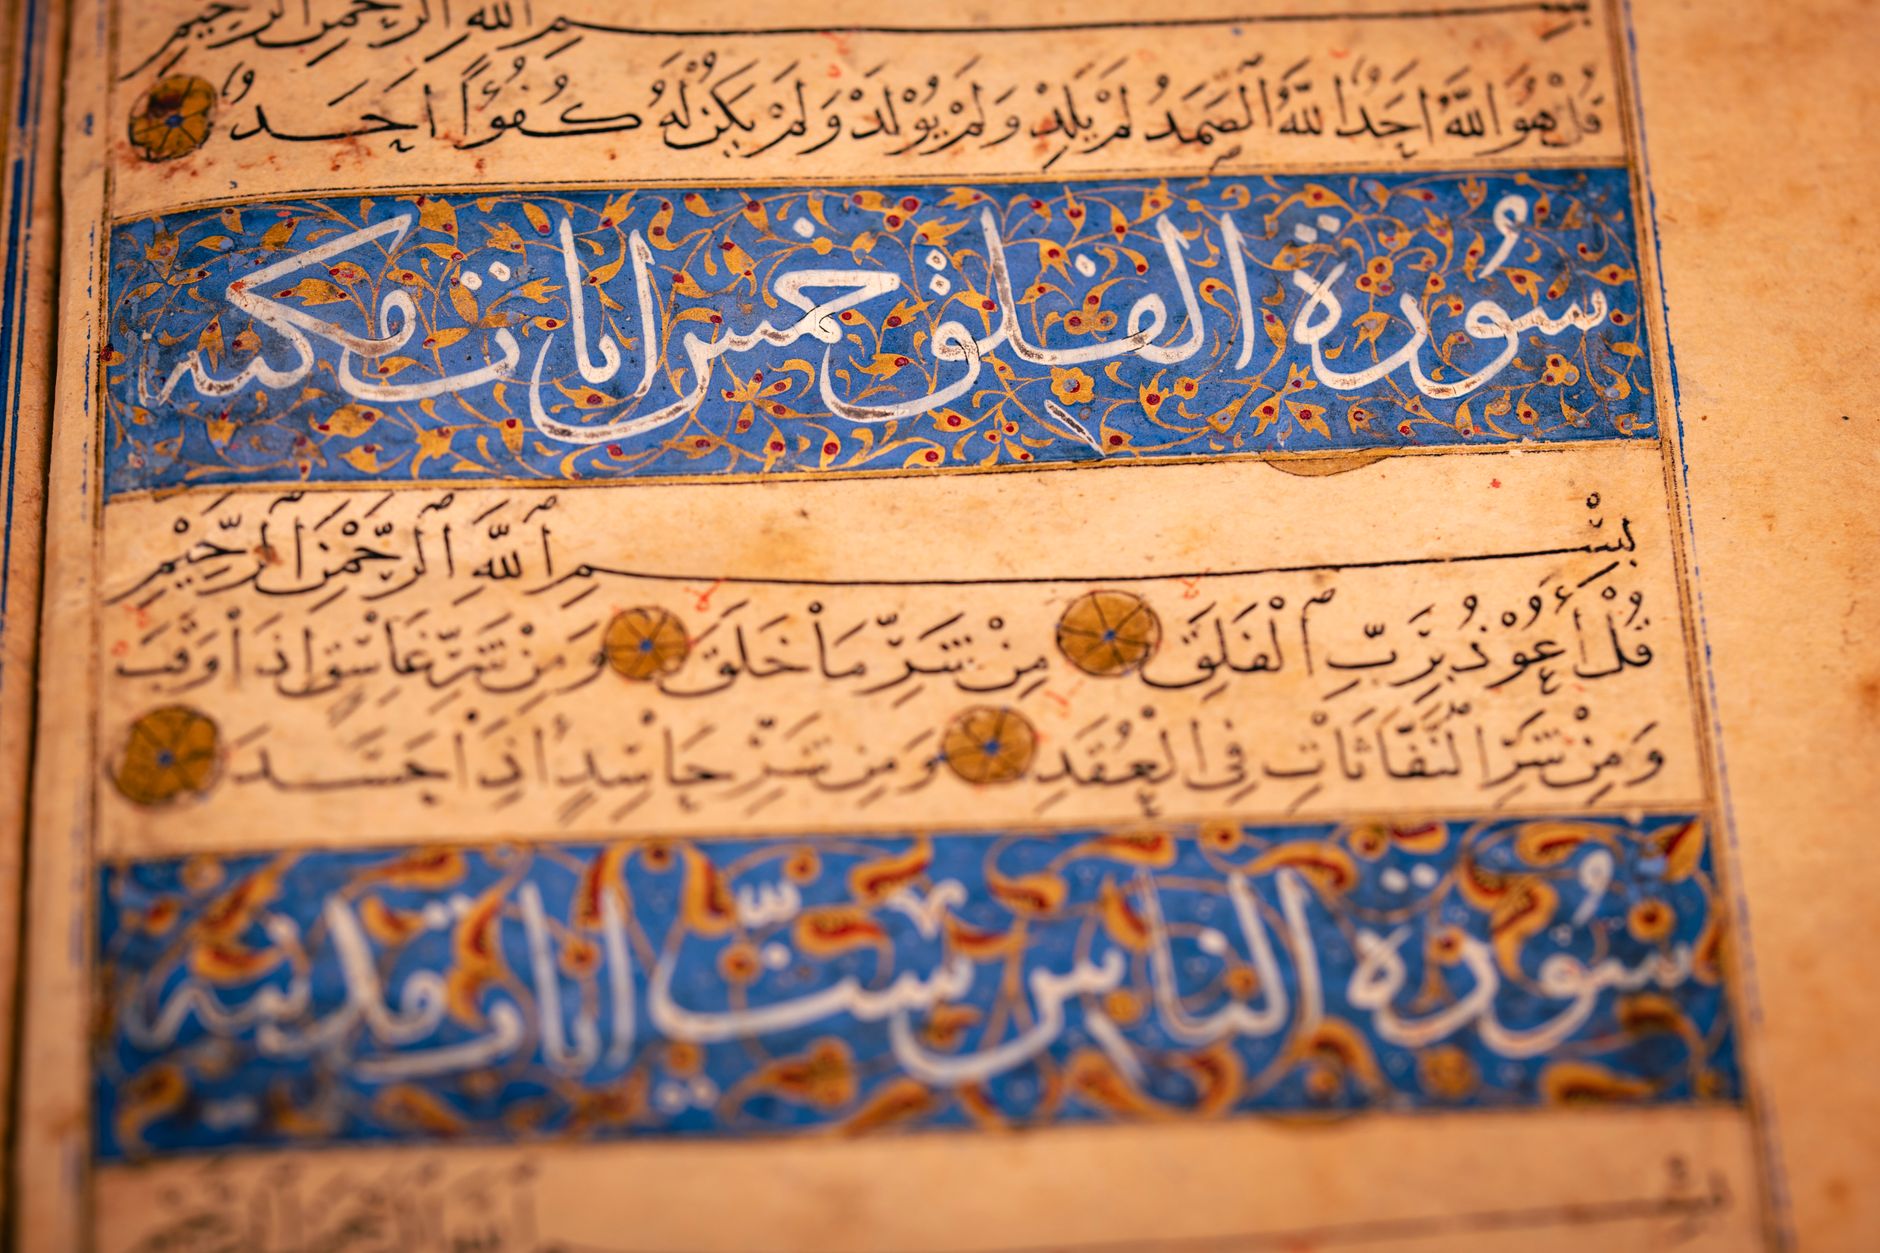 بِسْمِ اللهِ الرَّحْمٰنِ الرَّحِيْمِ
قُلْ هُوَ اللَّهُ اَحَدٌ اَللَّهُ الصَّمَدُ لَمْ يَلِدْ وَلَمْ يُوْلَدْ وَلَمْ يَكُنْ لَهُ كُفُوًا اَحَدٌ
سُورة الفلق خمس ايات مكيه
بِسْمِ اللهِ الرَّحْمٰنِ الرَّحِيْمِ
قُلْ أَعُوْذُ بِرَبِّ الْفَلَقِ مِنْ شَرِّ مَا خَلَقَ وَمِنْ شَرِّ غَاسِقٍ اِذَا وَقَبَ
وَمِنْ شَرِّ النَّفَّاثَاتِ فِى الْعُقَدِ وَمِنْ شَرِّ حَاسِدٍ اِذَا حَسَدَ
سُورة الناس ستّ ايات مدنيه